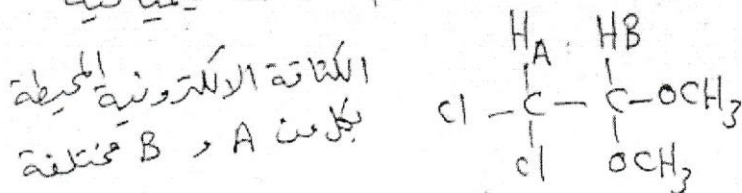 الكثافة الالكترونية المحيطة
بكل من A و B مختلفة
H_A HB
Cl - C - C - OCH₃
Cl OCH₃